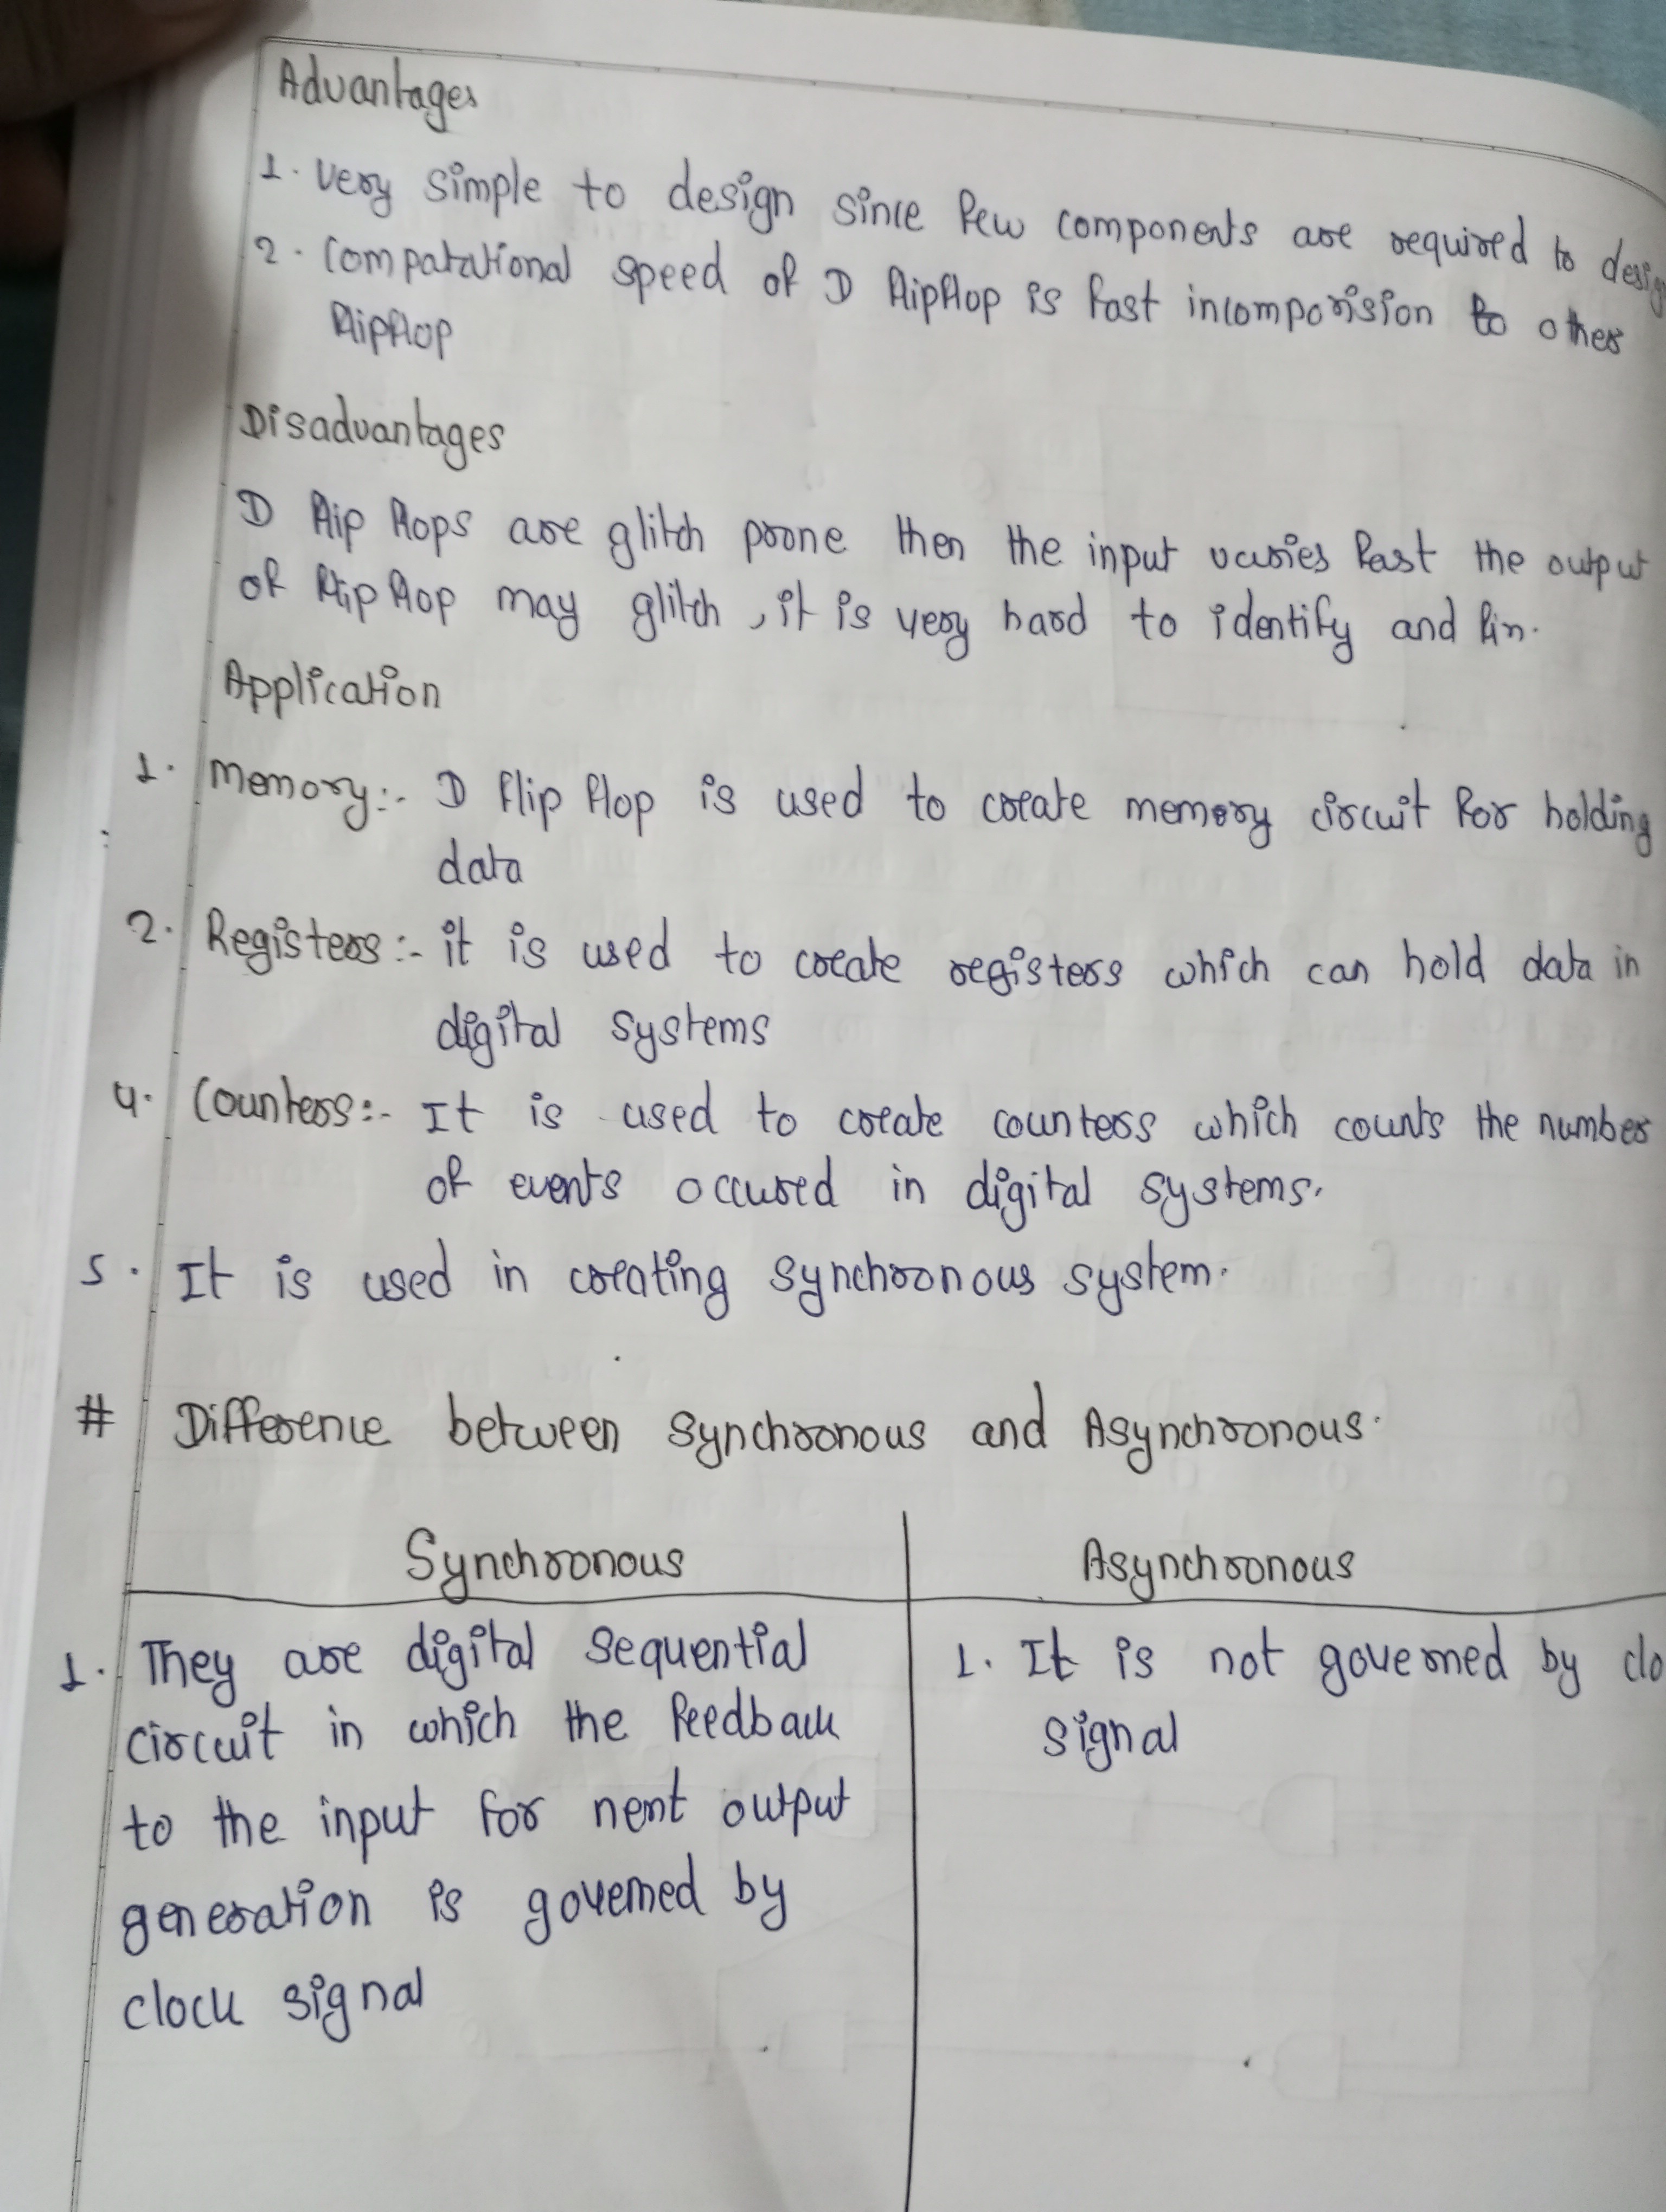 Advantages
1. Very simple to design since few components are required to design
2. Computational speed of D flipflop is fast incomporision to other
flipflop
Disadvantages
D flip flops are glitch prone then the input varies fast the output
of flip flop may glitch, it is very hard to identify and fix.
Application
1. Memory:- D flip flop is used to create memory circuit for holding
data
2. Registers:- it is used to create registers which can hold data in
digital systems
4. Counters:- It is used to create counters which counts the number
of events occured in digital systems.
5. It is used in creating synchronous system.
# Difference between Synchronous and Asynchronous.
Synchronous
1. They are digital sequential
circuit in which the feedback
to the input for next output
generation is governed by
clock signal
Asynchronous
1. It is not governed by clo
signal